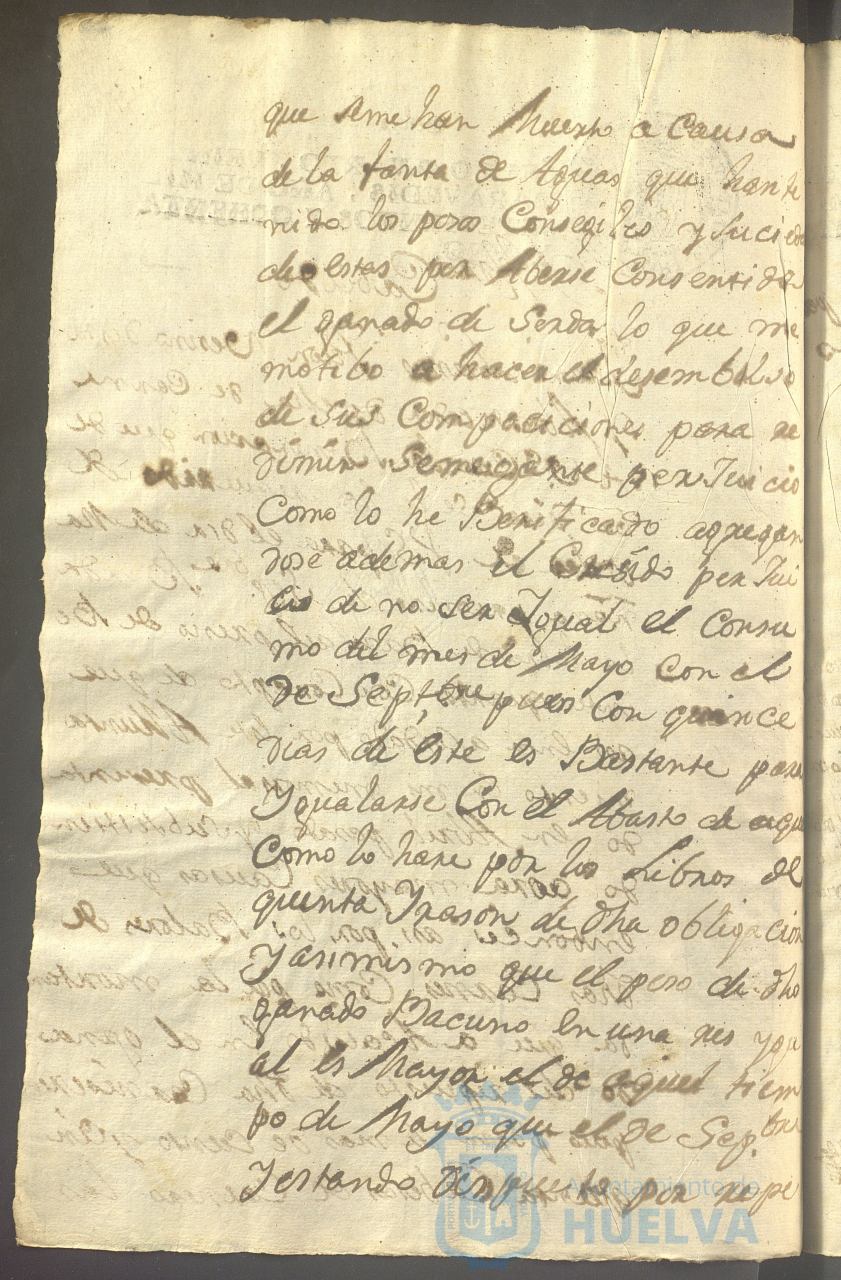 que seme han Muerto a Causa
de la fanta de Aguas que hante
nido los posos Consegiles y Sucied
de estas por Aberse Consentido
el ganado de Serdos lo que me
motibo a hacer el desembolso
de sus Composiciones para re
dimir Semegante perJuicio
Como lo he Berificado agregan
dose ademas el Crecido perJui
cio de no ser Jgual el Consu
mo del mes de Mayo con el
de Septbre pues con quince
dias de este es Bastante para
Ygualarse Con el Abasto de aque
Como lo hare por los Libros de
quenta Yrason de dha obligacion
Yasimismo que el peso de dho
ganado Bacuno en una res ygu
al es Mayor el de aquel tiem
po de Mayo que el de Sepbre
Yestando dispuesta por repe
Ayuntamiento de
HUELVA